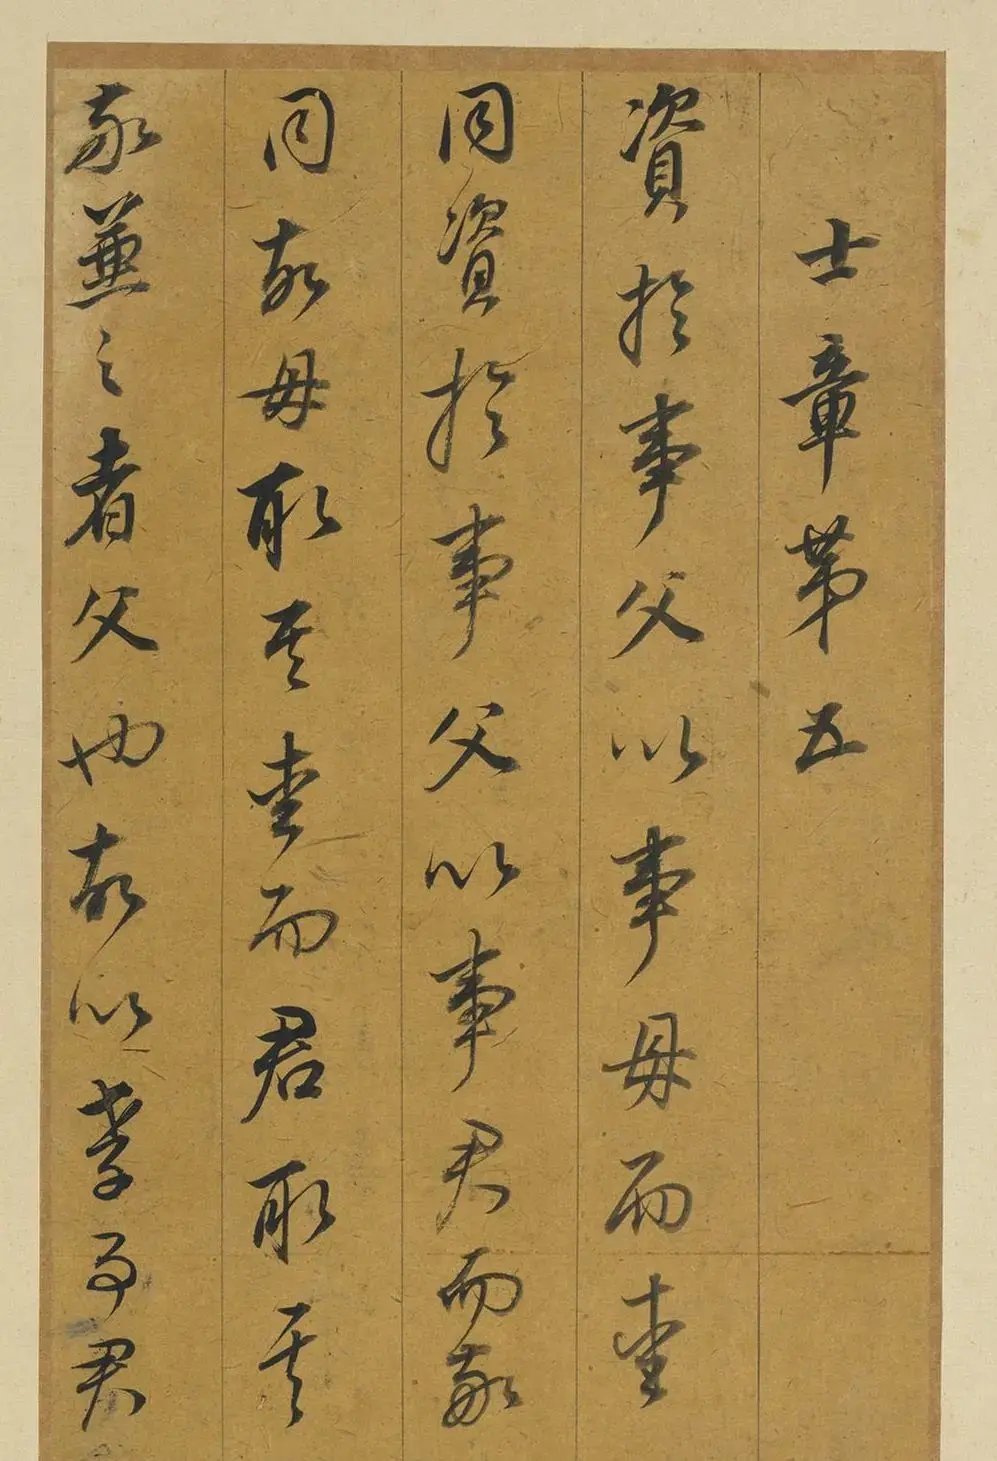 士章第五
資於事父以事母而愛
同資於事父以事君而敬
同故母取其愛而君取其
敬兼之者父也故以孝事君